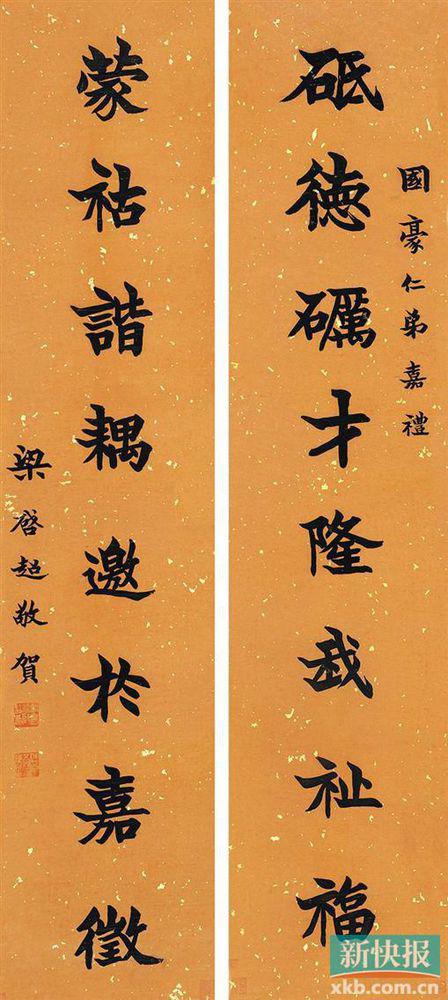 國豪仁弟嘉禮
砥徳礪才隆我祉福
蒙祜諧耦邀於嘉徵
梁啓超敬賀
新快报
xkb.com.cn